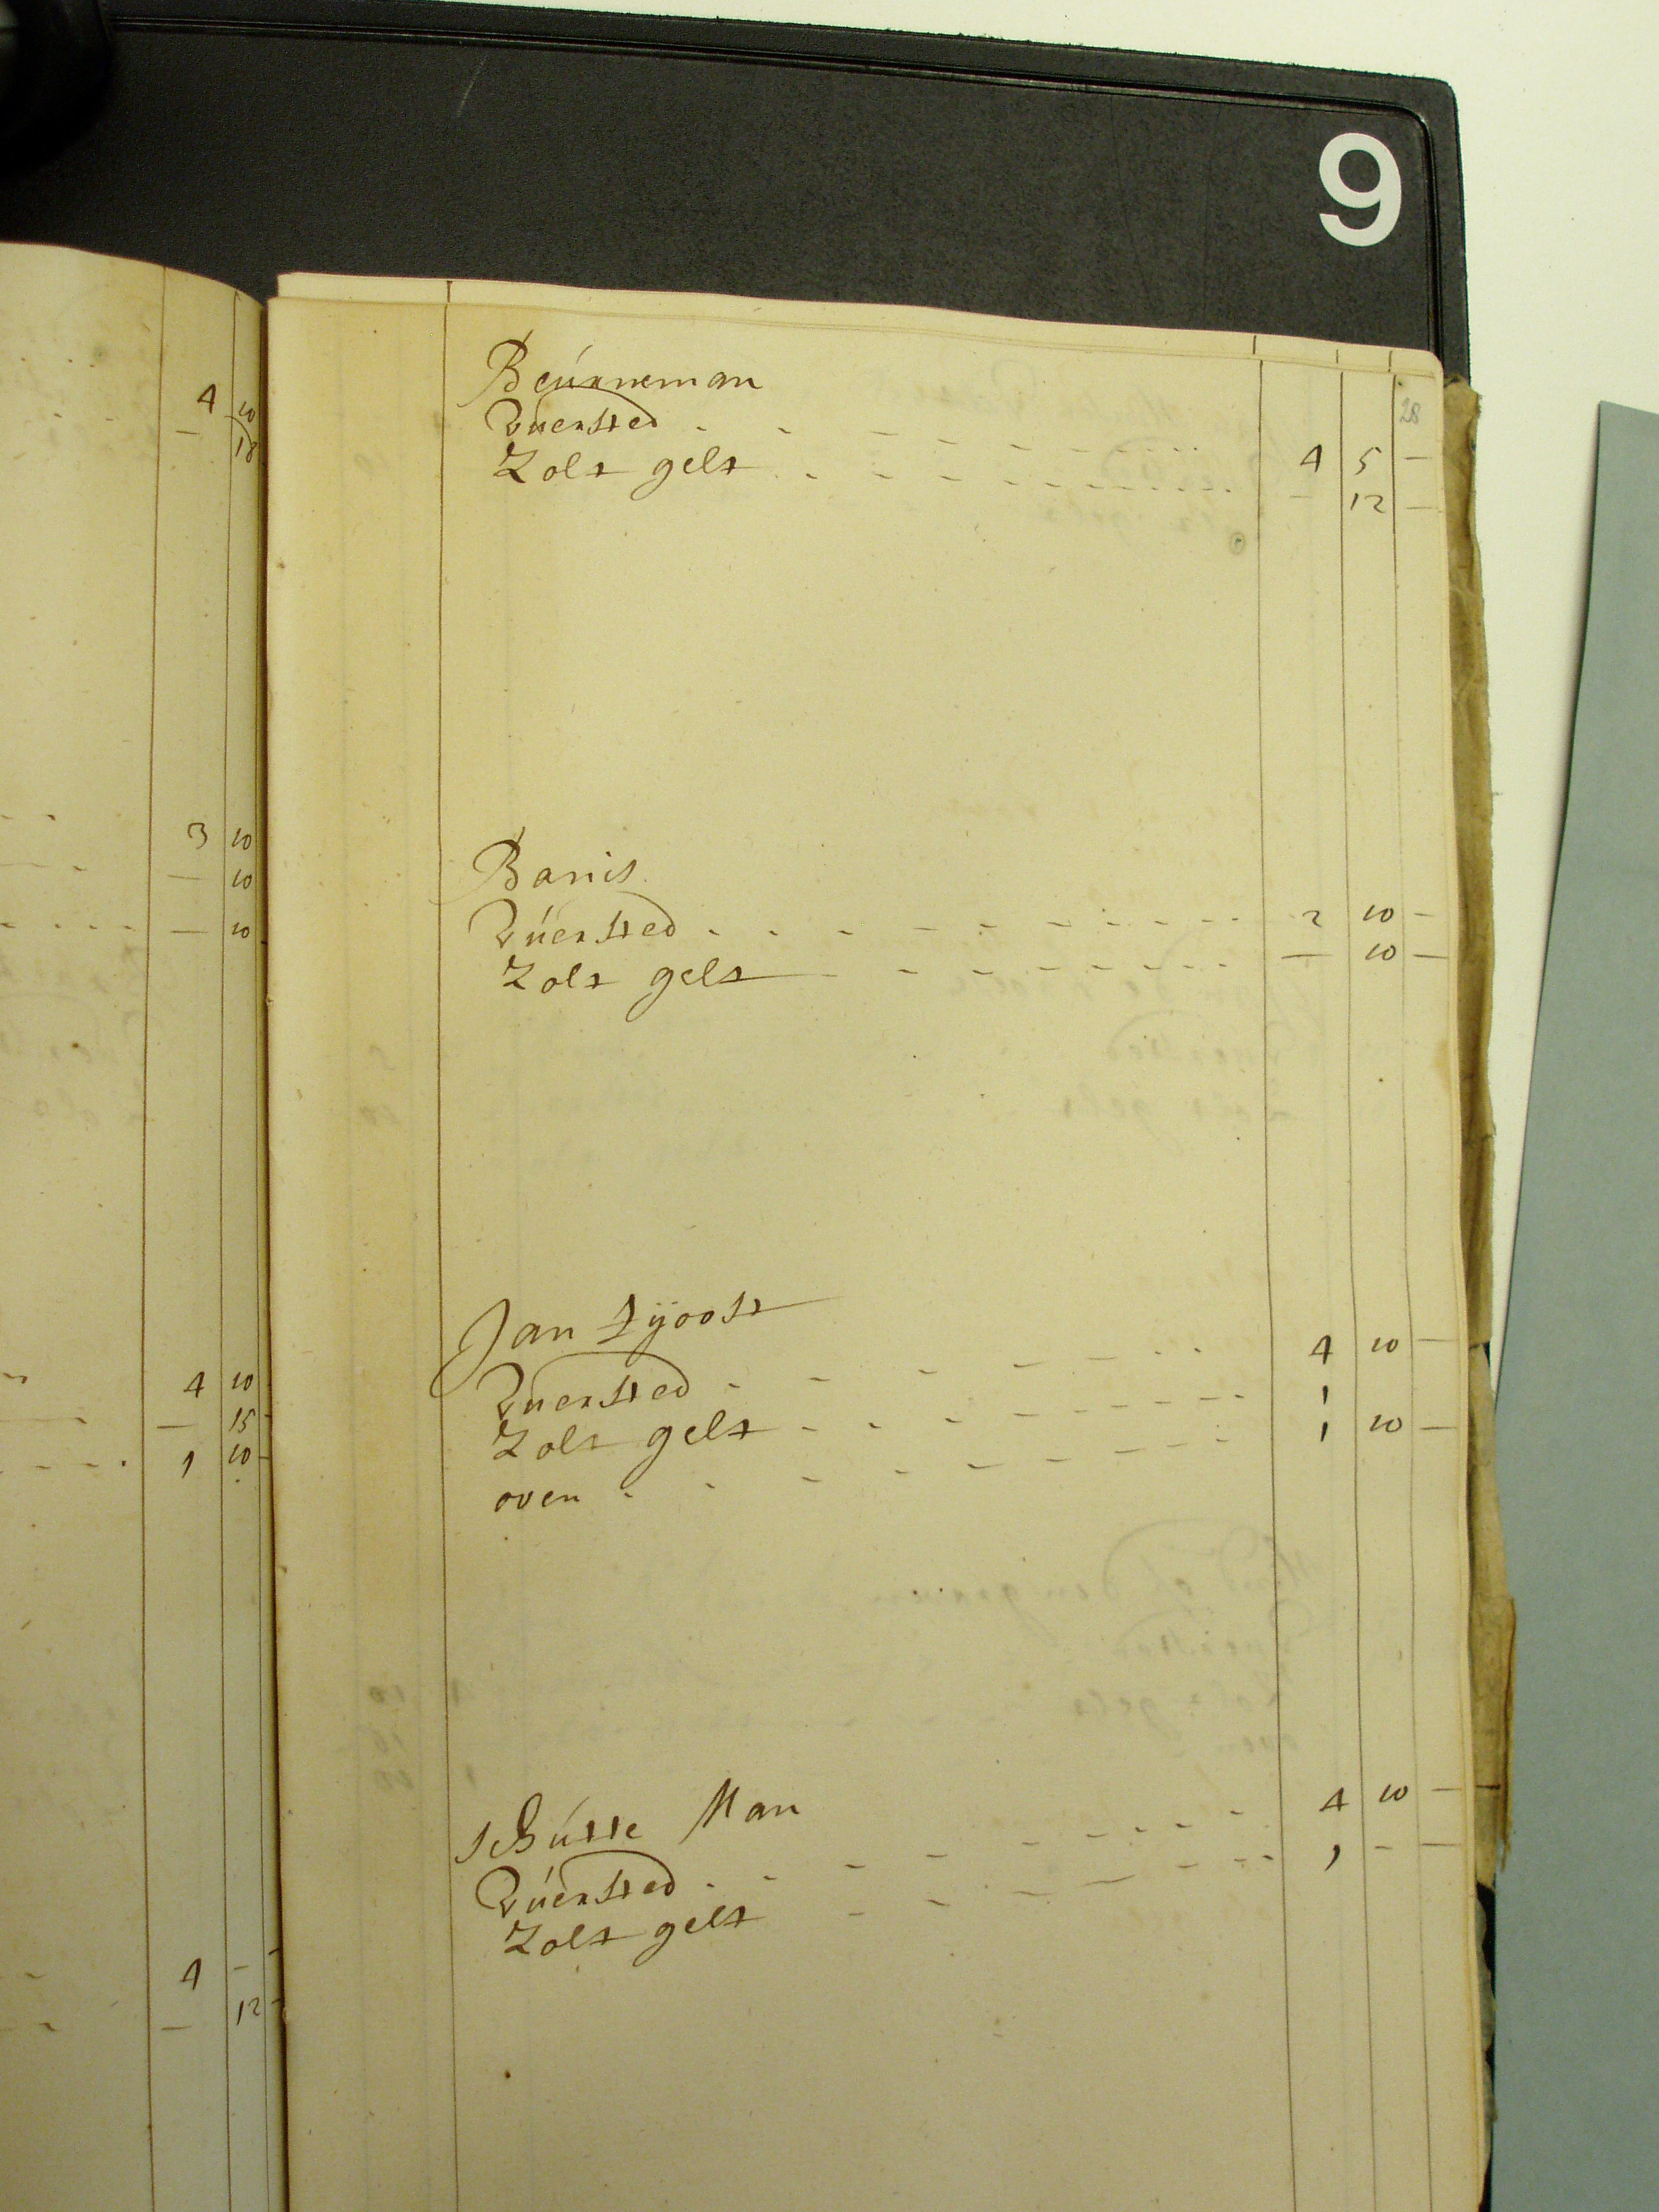 9
28
4 10
— 18
3 10
— 10
— 10
4 10
— 15
1 10
4 –
— 12
Beúrneman
Vúersted 4 5 —
Zolt gelt — 12 —
Barris
Vúersted 2 10 —
Zolt gelt — 10 —
Jan Tÿoost
Vúersted 4 10 —
Zolt gelt 1
oven 1 10 —
schútte Man
Vúersted 4 10 —
Zolt gelt 1 – —